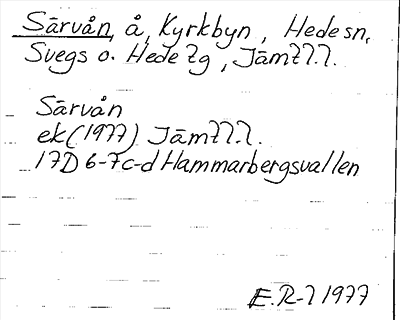 Särvån, å, Kyrkbyn, Hede sn,
Svegs o. Hede lg, Jämtl. l.
Särvån
ek (1977) Jämtl. l.
17D 6-7c-d Hammarbergsvallen
E.R-l 1977